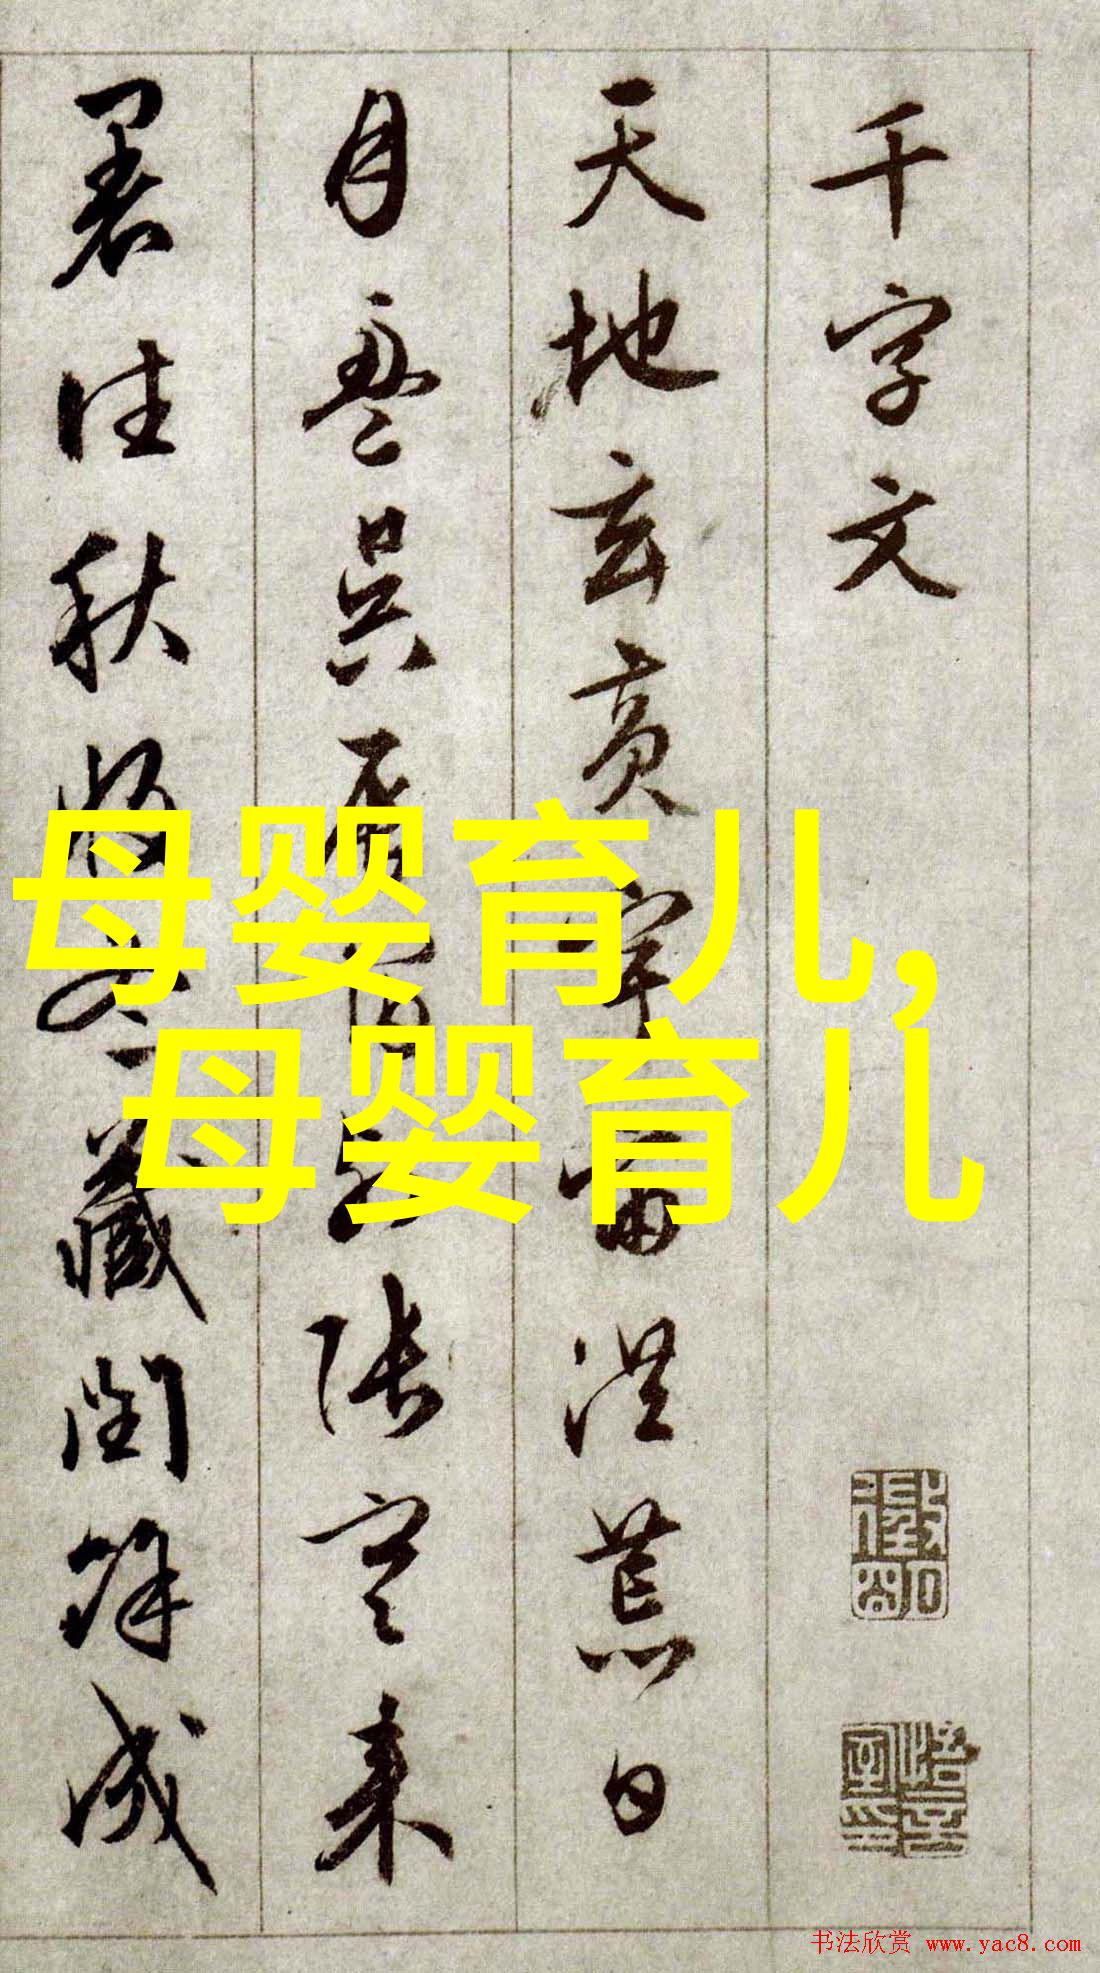 千字文
天地玄黄宇宙洪荒日
月盈昃辰宿列張寒来
暑往秋收冬藏閏餘成
母婴育儿,
母婴育儿
书法欣赏 www.yac8.com